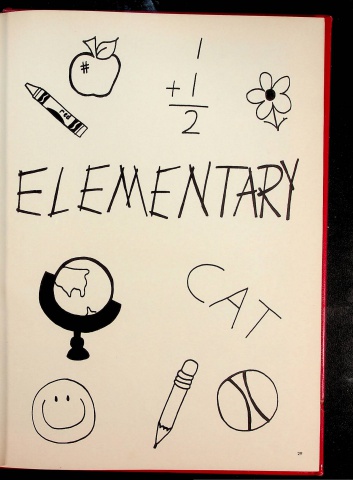 1
+ 1
2
red
ELEMENTARY
CAT
29